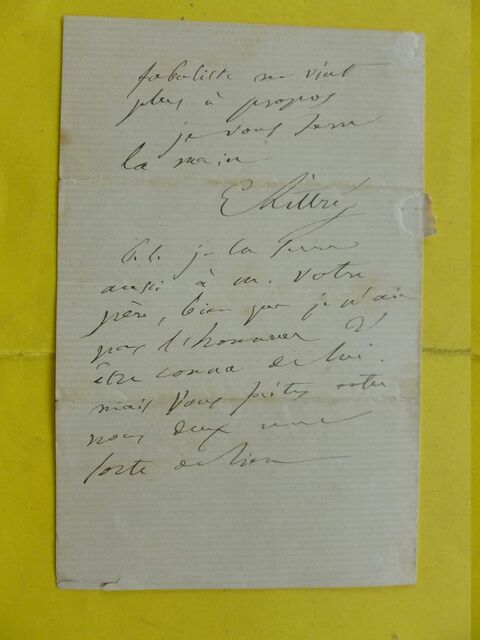 fabuliste ne vint
plus à propos
je vous serre
la main
E Littré
P.S. je la serre
aussi à M. votre
père, bien que je n'aie
pas l'honneur d'
être connu de lui.
mais vous faites entre
nous deux une
sorte de lien